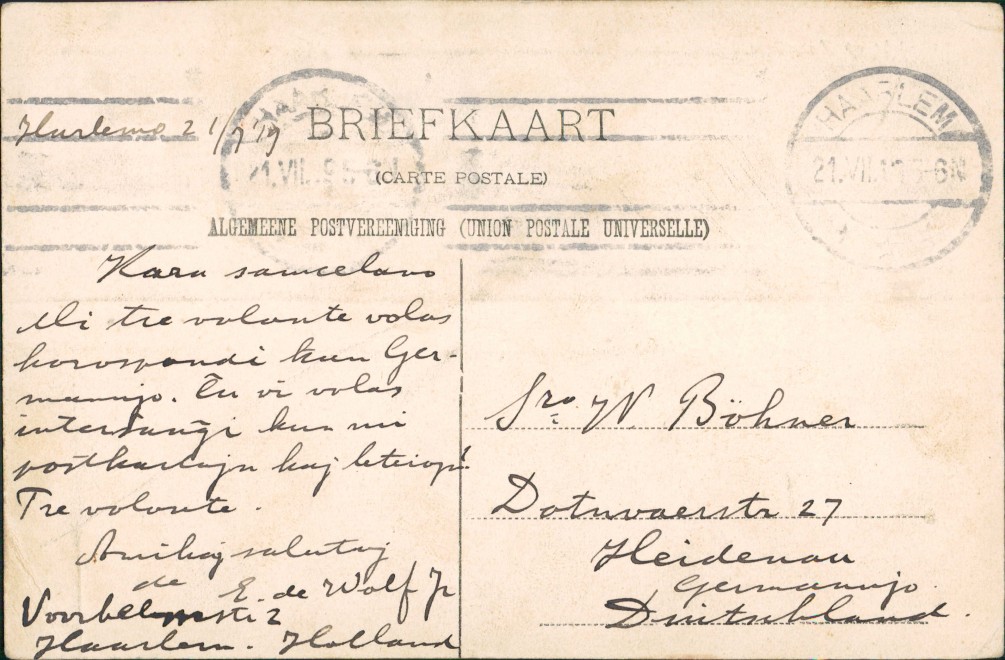 Harlemo 21/7 19
HAARLEM
21.VII.19 5-6N
BRIEFKAART
(CARTE POSTALE)
ALGEMEENE POSTVEREENIGING (UNION POSTALE UNIVERSELLE)
HAARLEM
21.VII.19 5-6N
Kara samcelano
Mi tre volonte volas
korospondi kun Ger-
manujo. Ĉu vi volas
interŝanĝi kun mi
postkartojn kaj leterojn?
Tre volonte.
Amikaj salutoj
de E. de Wolf Jr
2
Haarlem. Holland
Sro W. Böhner
27
Heidenau
Germanujo.
Duitschland.